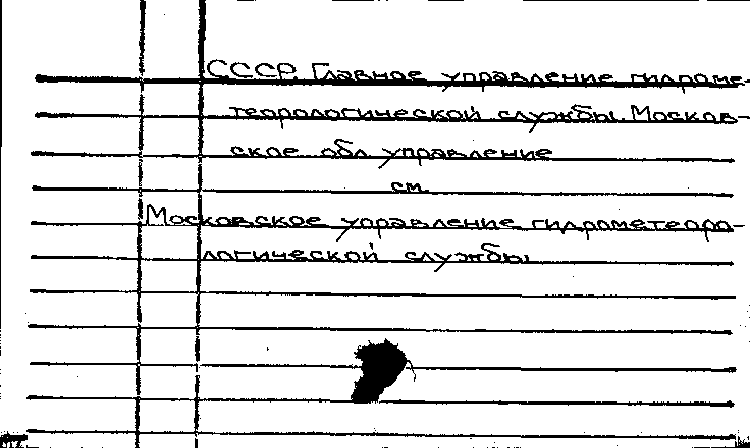 СССР. Главное управление гидроме-
теорологической службы. Москов-
ское обл. управление
см.
Московское управление гидрометеоро-
логической службы